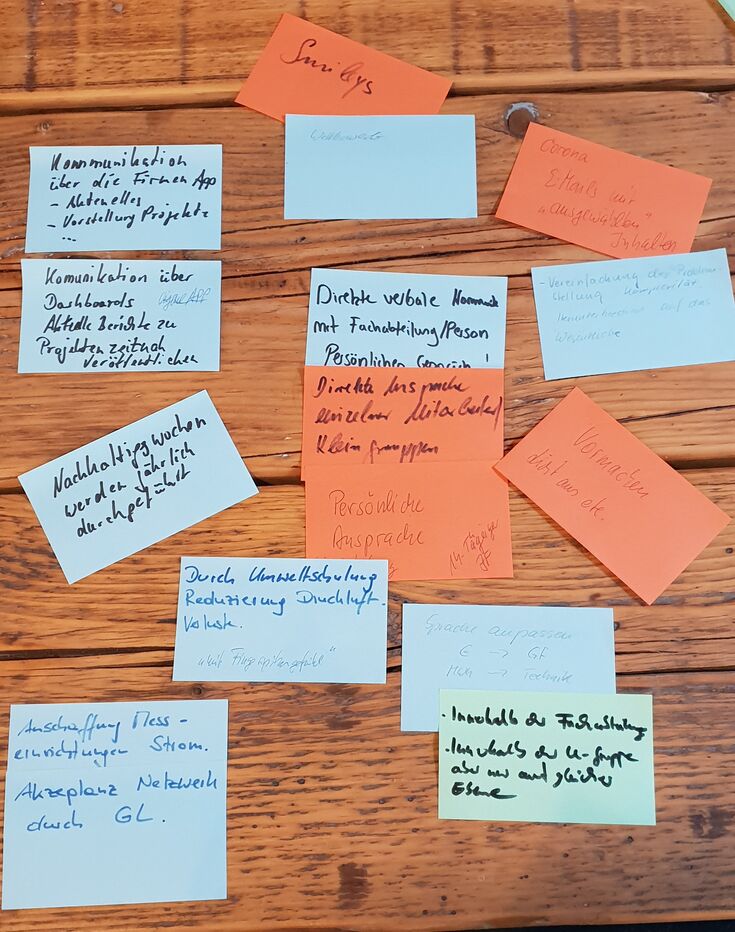 Smileys
Wettbewerb
Kommunikation
über die Firmen App
- Aktuelles
- Vorstellung Projekte
...
Corona
E-Mails mit
"ausgewählten"
Inhalten
Komunikation über
Dashboards
Aktuelle Berichte zu
Projekten zeitnah
veröffentlichen
Direkte verbale Kommunik
mit Fachabteilung/Person
Persönliches Gespräch!
- Vereinfachung der Problem-
stellung Komplexität.
auf das
Wesentliche
Direkte Ansprache
einzelner Mitarbeiter/
Kleingrupppen
Nachhaltigswochen
werden jährlich
durchgeführt
Vormachen
etc.
Persönliche
Ansprache
14-Tägiger
JF
Durch Umweltschulung
Reduzierung Druchluft.
Verluste.
"mit Fingerspitzengefühl"
Sprache anpassen
€ → GF
MWh → Technik
Anschaffung Mess-
einrichtungen Strom.
Akzeptanz Netzwerk
durch GL.
- Innerhalb der Fachabteilung
- Innerhalb der U-Gruppe
aber nur auf gleicher
Ebene